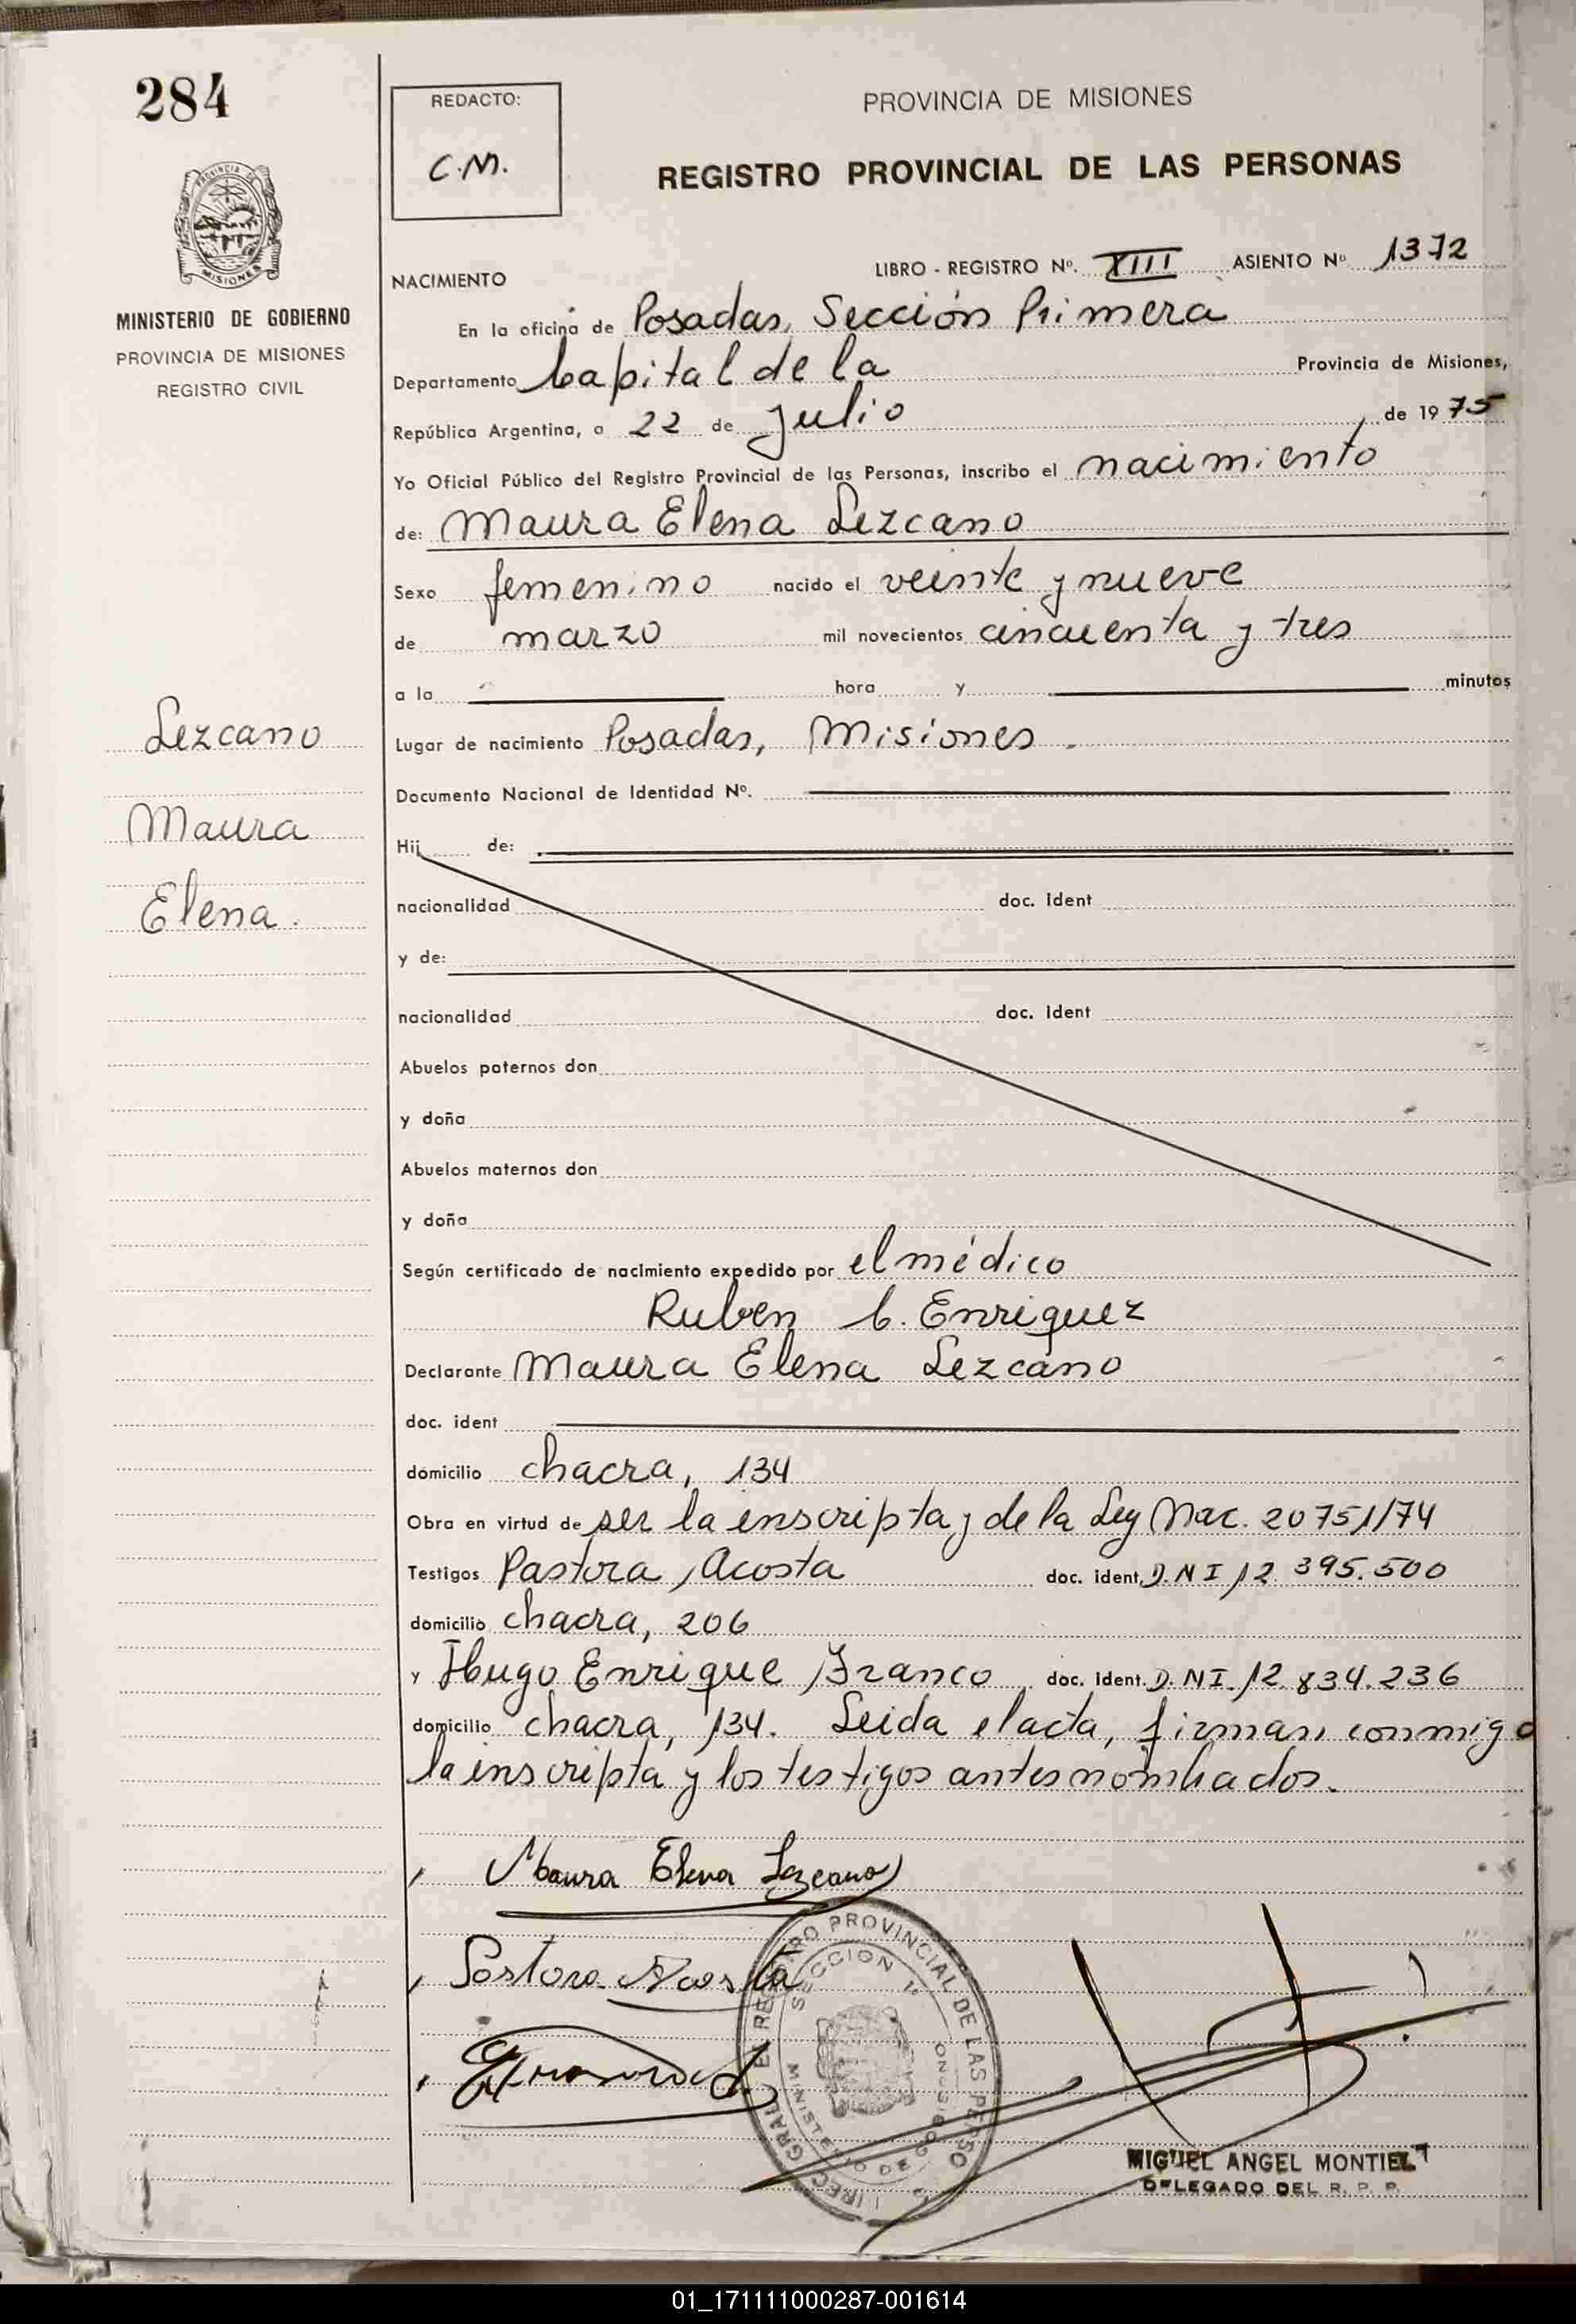 284
REDACTO:
C.M.
PROVINCIA DE MISIONES
REGISTRO PROVINCIAL DE LAS PERSONAS
MISIONES
MINISTERIO DE GOBIERNO
PROVINCIA DE MISIONES
REGISTRO CIVIL
LIBRO - REGISTRO Nº. XIII ASIENTO Nº 1372
NACIMIENTO
En la oficina de Posadas, Sección Primera
Departamento Capital de la Provincia de Misiones,
República Argentina, a 22 de Julio de 1975
Yo Oficial Público del Registro Provincial de las Personas, inscribo el nacimiento
de: Maura Elena Lezcano
Sexo femenino nacido el veinte y nueve
de marzo mil novecientos cincuenta y tres
a la hora y minutos
Lezcano
Maura
Elena.
Lugar de nacimiento Posadas, Misiones.
Documento Nacional de Identidad Nº.
Hij de:
nacionalidad doc. Ident
y de:
nacionalidad doc. Ident
Abuelos paternos don
y doña
Abuelos maternos don
y doña
Según certificado de nacimiento expedido por el médico
Ruben C. Enriquez
Declarante Maura Elena Lezcano
doc. ident
domicilio chacra, 134
Obra en virtud de ser la inscripta y de la Ley Nac. 20751/74
Testigos Pastora, Acosta doc. ident. D.N I 12.395.500
domicilio chacra, 206
y Hugo Enrique Franco doc. ident. D.NI. 12.834.236
domicilio chacra, 134. Leida el acta, firman conmigo
la inscripta y los testigos antes nombrados.
Maura Elena Lezcano
Pastora Acosta
REGISTRO PROVINCIAL DE LAS PERSO
SECCION 1ª
MINISTERIO DE GOBIERNO
MIGUEL ANGEL MONTIEL
DELEGADO DEL R. P. P.
01_171111000287-001614